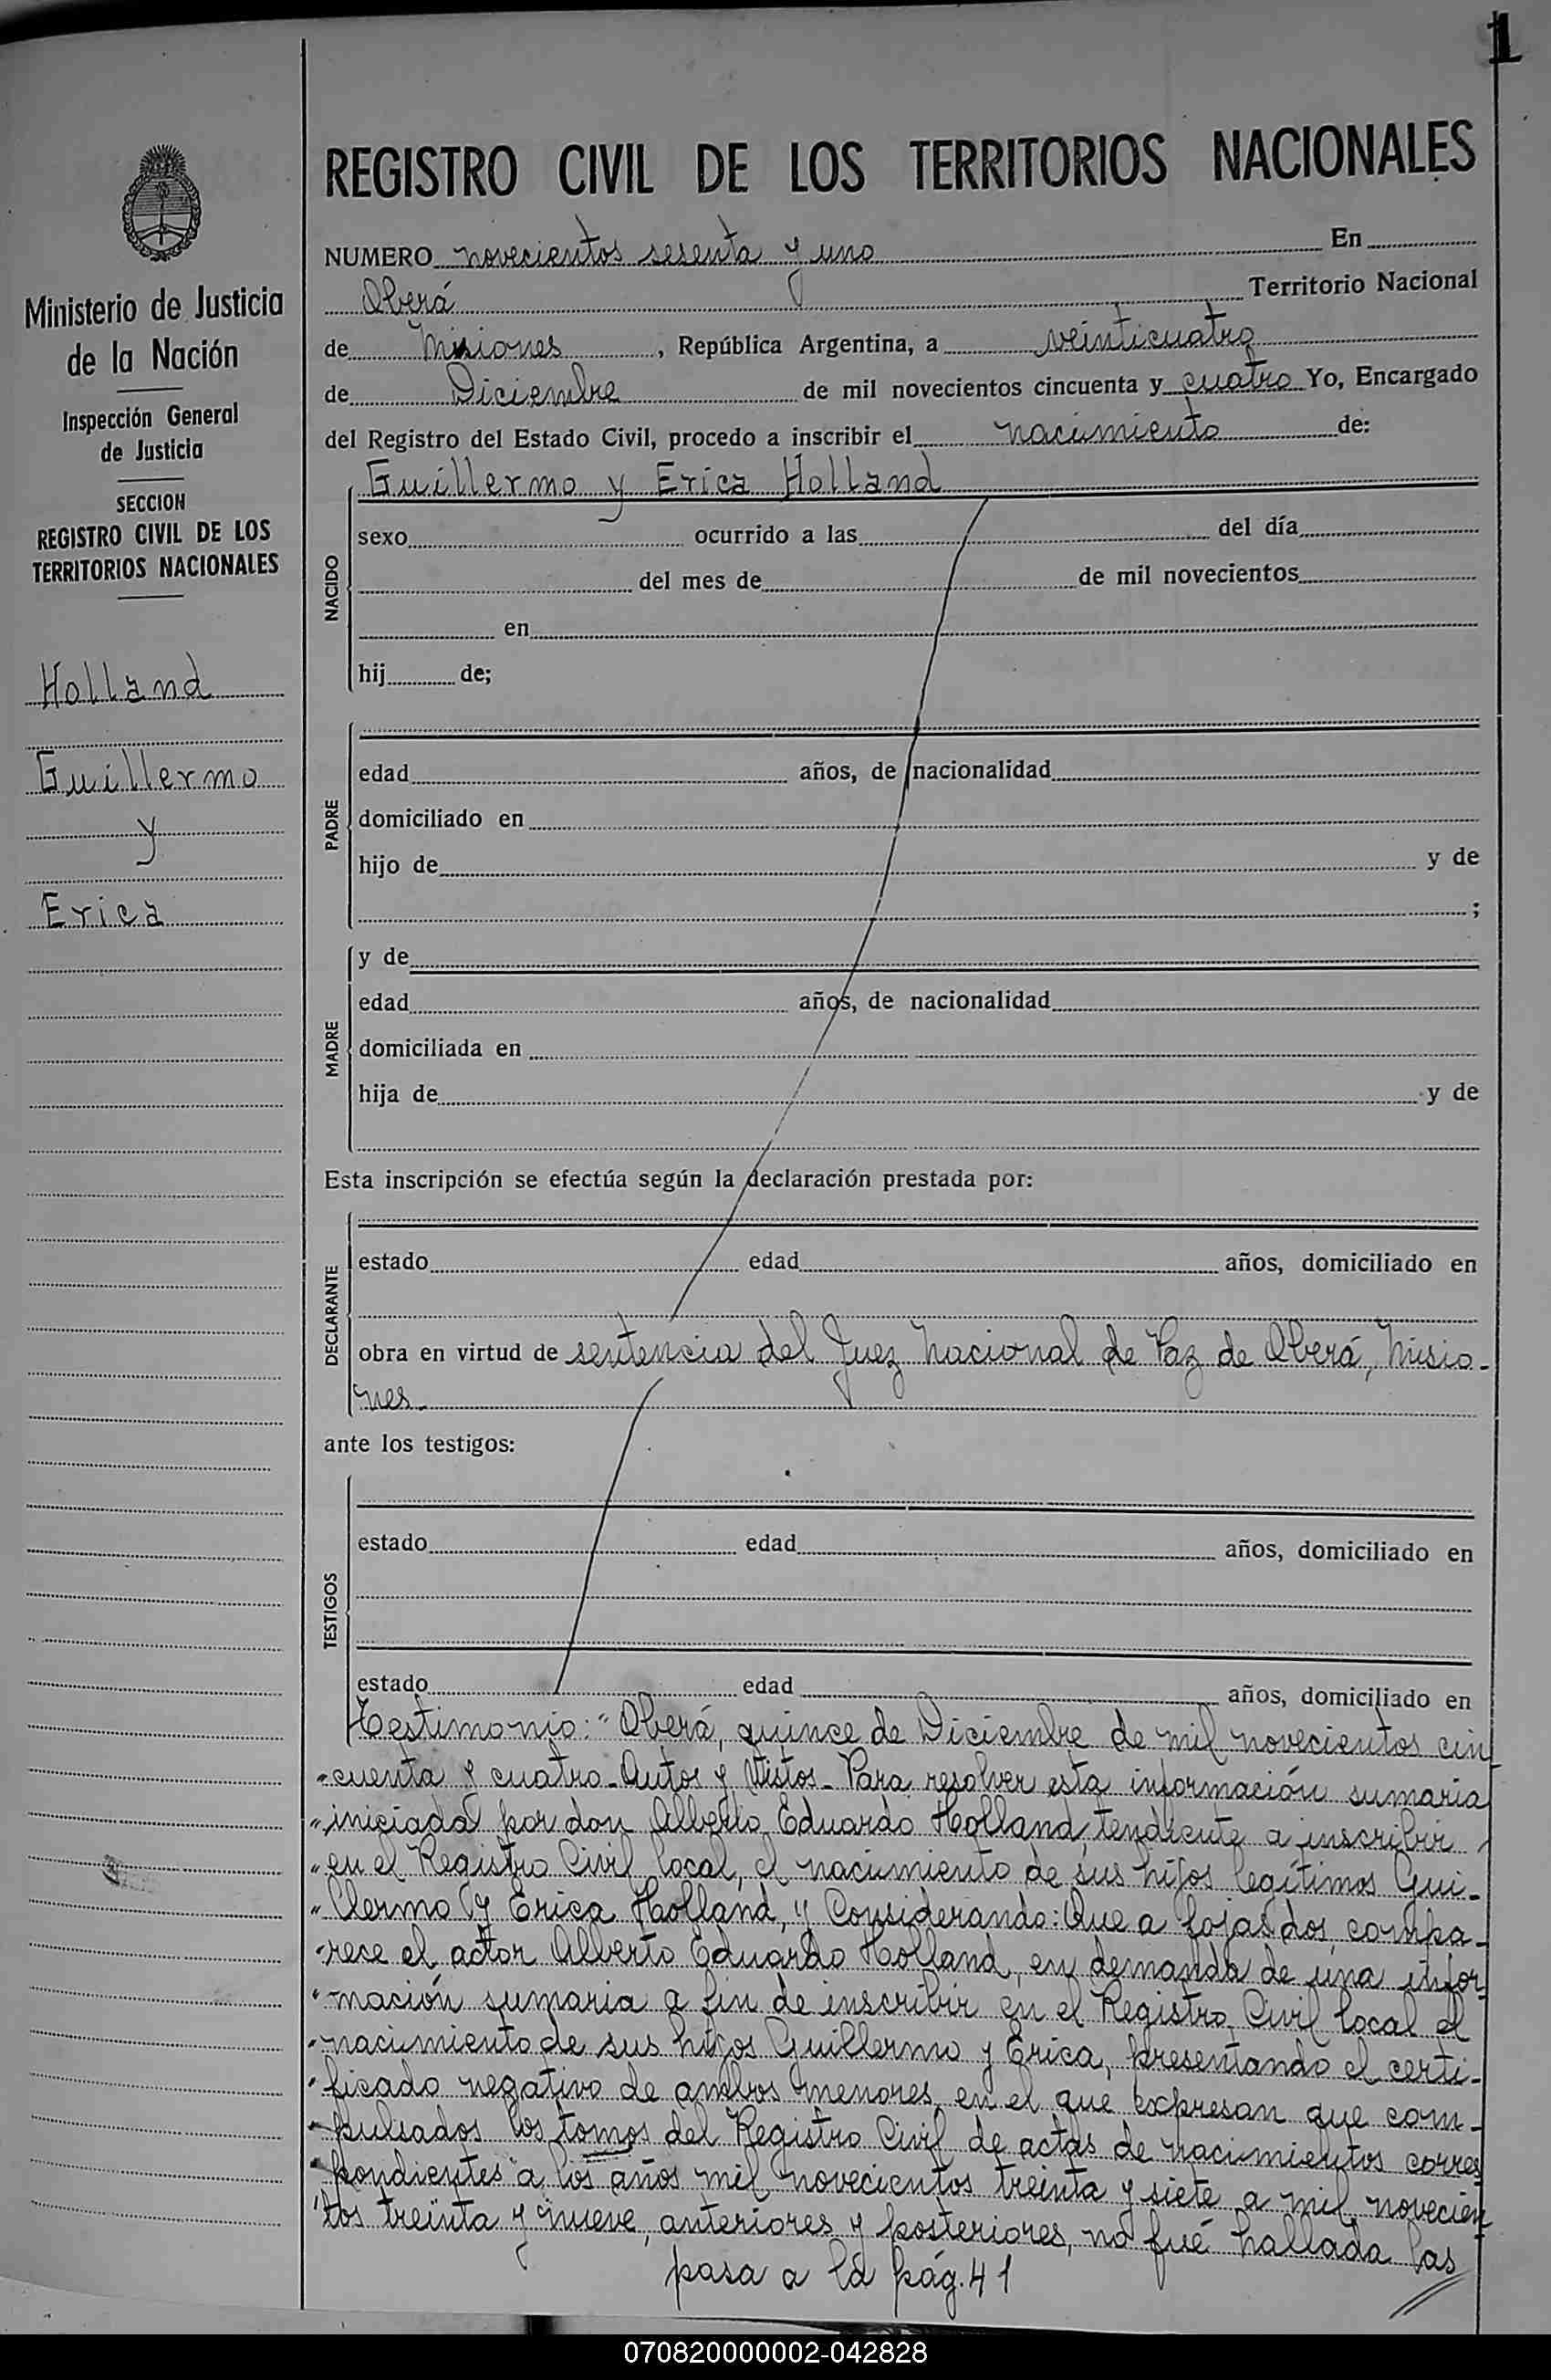 1
REGISTRO CIVIL DE LOS TERRITORIOS NACIONALES
Ministerio de Justicia
de la Nación
Inspección General
de Justicia
SECCION
REGISTRO CIVIL DE LOS
TERRITORIOS NACIONALES
Holland
Guillermo
y
Erica
NUMERO novecientos sesenta y uno En
Oberá Territorio Nacional
de Misiones, República Argentina, a veinticuatro
de Diciembre de mil novecientos cincuenta y cuatro Yo, Encargado
del Registro del Estado Civil, procedo a inscribir el nacimiento de:
Guillermo y Erica Holland
NACIDO
sexo ocurrido a las del día
del mes de de mil novecientos
en
hij de;
PADRE
edad años, de nacionalidad
domiciliado en
hijo de y de
;
MADRE
y de
edad años, de nacionalidad
domiciliada en
hija de y de
Esta inscripción se efectúa según la declaración prestada por:
DECLARANTE
estado edad años, domiciliado en
obra en virtud de sentencia del Juez Nacional de Paz de Oberá, Misio-
nes.
ante los testigos:
TESTIGOS
estado edad años, domiciliado en
estado edad años, domiciliado en
Testimonio: "Oberá, quince de Diciembre de mil novecientos cin
"cuenta y cuatro- Autos y Vistos- Para resolver esta información sumaria
"iniciada por don Alberto Eduardo Holland, tendiente a inscribir
"en el Registro Civil local, el nacimiento de sus hijos legítimos Gui-
"llermo y Erica Holland, y Considerando: Que a fojas dos, compa-
"rece el actor Alberto Eduardo Holland, en demanda de una infor
"mación sumaria a fin de inscribir en el Registro Civil local el
"nacimiento de sus hijos Guillermo y Erica, presentando el certi-
"ficado negativo de ambos menores, en el que expresan que com-
"pulsados los tomos del Registro Civil de actas de nacimientos corres
"pondientes a los años mil novecientos treinta y siete a mil novecien
"tos treinta y nueve, anteriores y posteriores, no fué hallada las
pasa a la pág. 41
070820000002-042828